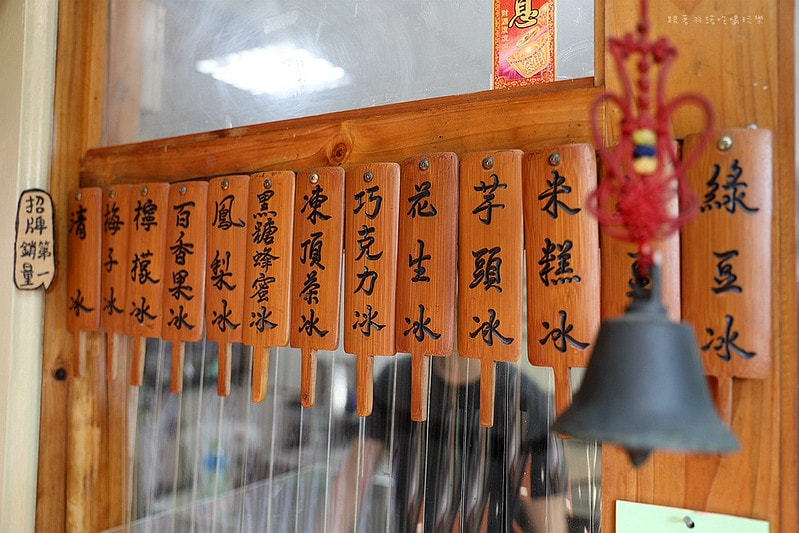 跟著羽諾吃喝玩樂
息
財源滾滾
招牌
第一
銷量
清冰
梅子冰
檸檬冰
百香果冰
鳳梨冰
黑糖蜂蜜冰
凍頂茶冰
巧克力冰
花生冰
芋頭冰
米糕冰
豆
綠豆冰